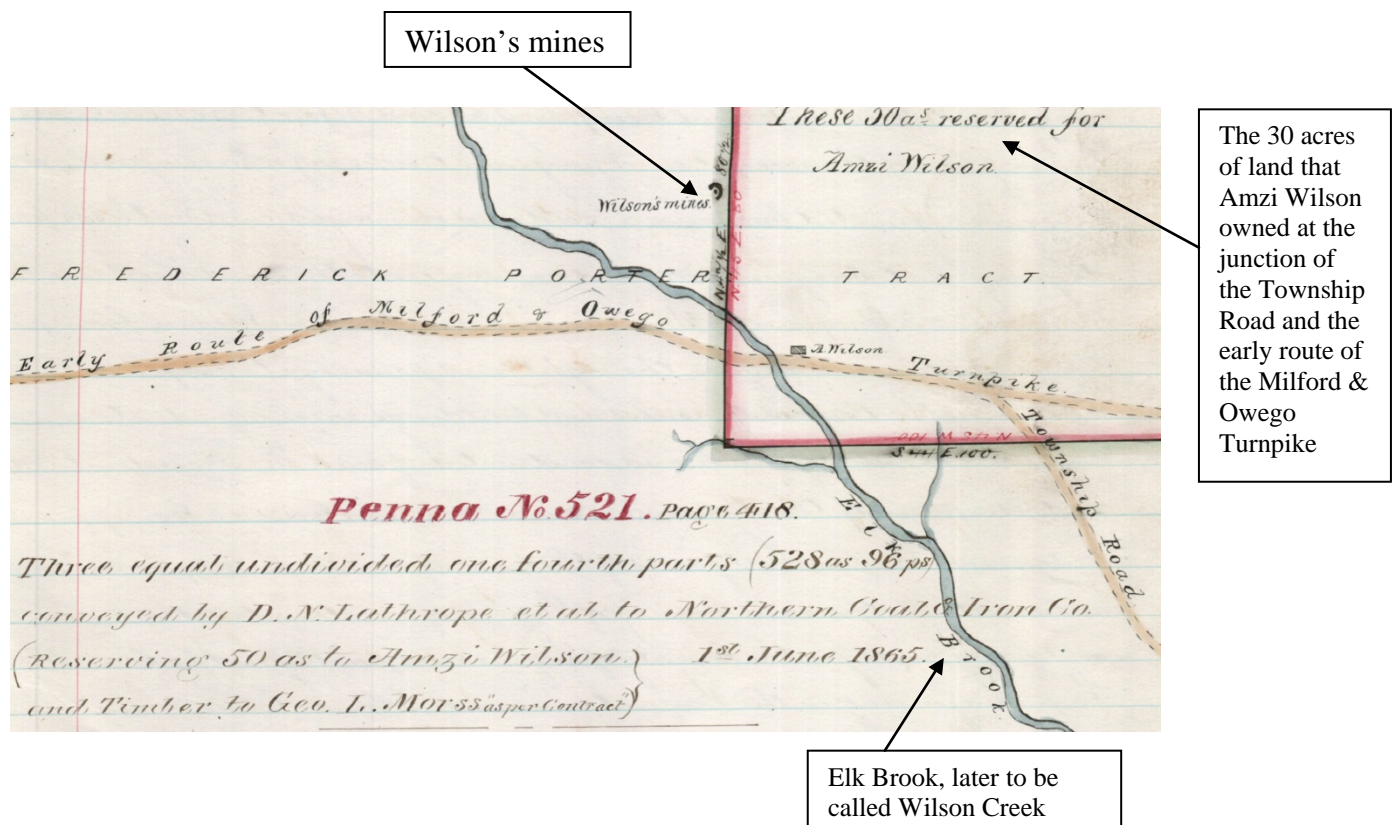 Wilson's mines
These 50 as reserved for
Amzi Wilson.
The 30 acres
of land that
Amzi Wilson
owned at the
junction of
the Township
Road and the
early route of
the Milford &
Owego
Turnpike
Wilson's mines.
FREDERICK PORTER TRACT.
Early Route of Milford & Owego Turnpike.
A Wilson
Township Road
S 44 E. 100.
Elk Brook
Penna No. 521. Page 418.
Three equal undivided one fourth parts (528 as 96 ps)
conveyed by D. N. Lathrope et al to Northern Coal & Iron Co.
(Reserving 50 as to Amzi Wilson. 1st June 1865.
and Timber to Geo. L. Morss "as per Contract")
Elk Brook, later to be
called Wilson Creek